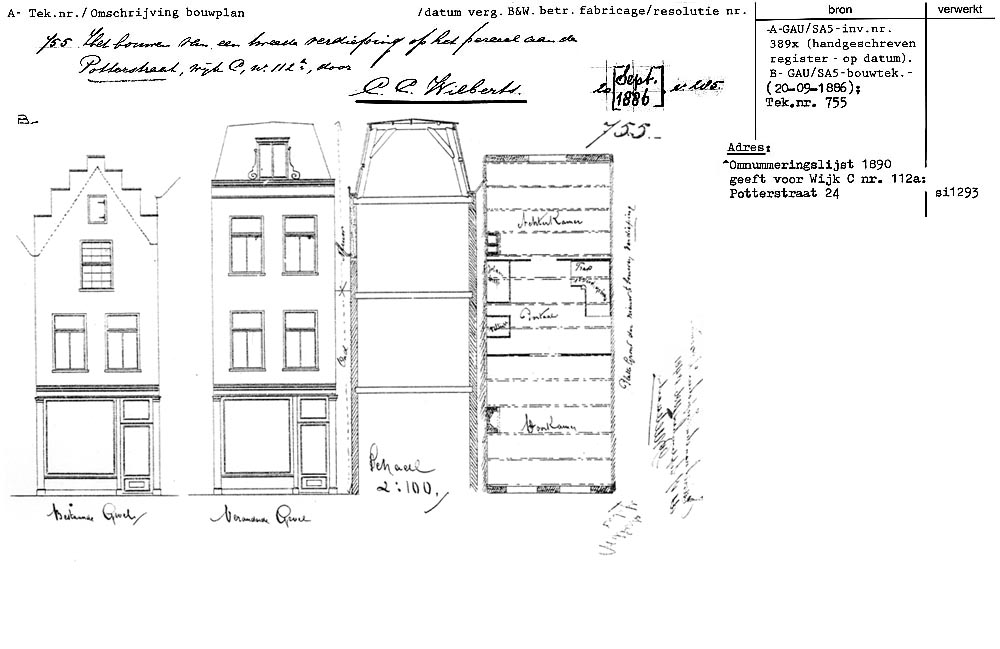 A- Tek.nr./ Omschrijving bouwplan
/datum verg. B&W. betr. fabricage/resolutie nr.
bron
verwerkt
755 Het bouwen van een tweede verdieping op het perceel aan de
Potterstraat, wijk C, nr. 112a, door
C. C. Wilberts.
20 Sept. 1886
755.-
A-GAU/SA5-inv.nr.
389x (handgeschreven
register - op datum).
B- GAU/SA5-bouwtek.-
(20-09-1886);
Tek.nr. 755
Adres:
Omnummeringslijst 1890
geeft voor Wijk C nr. 112a:
Potterstraat 24
si1293
B-
Achterkamer
Portaal
Voorkamer
Schaal
2:100.
Bestaande Gevel
Veranderde Gevel